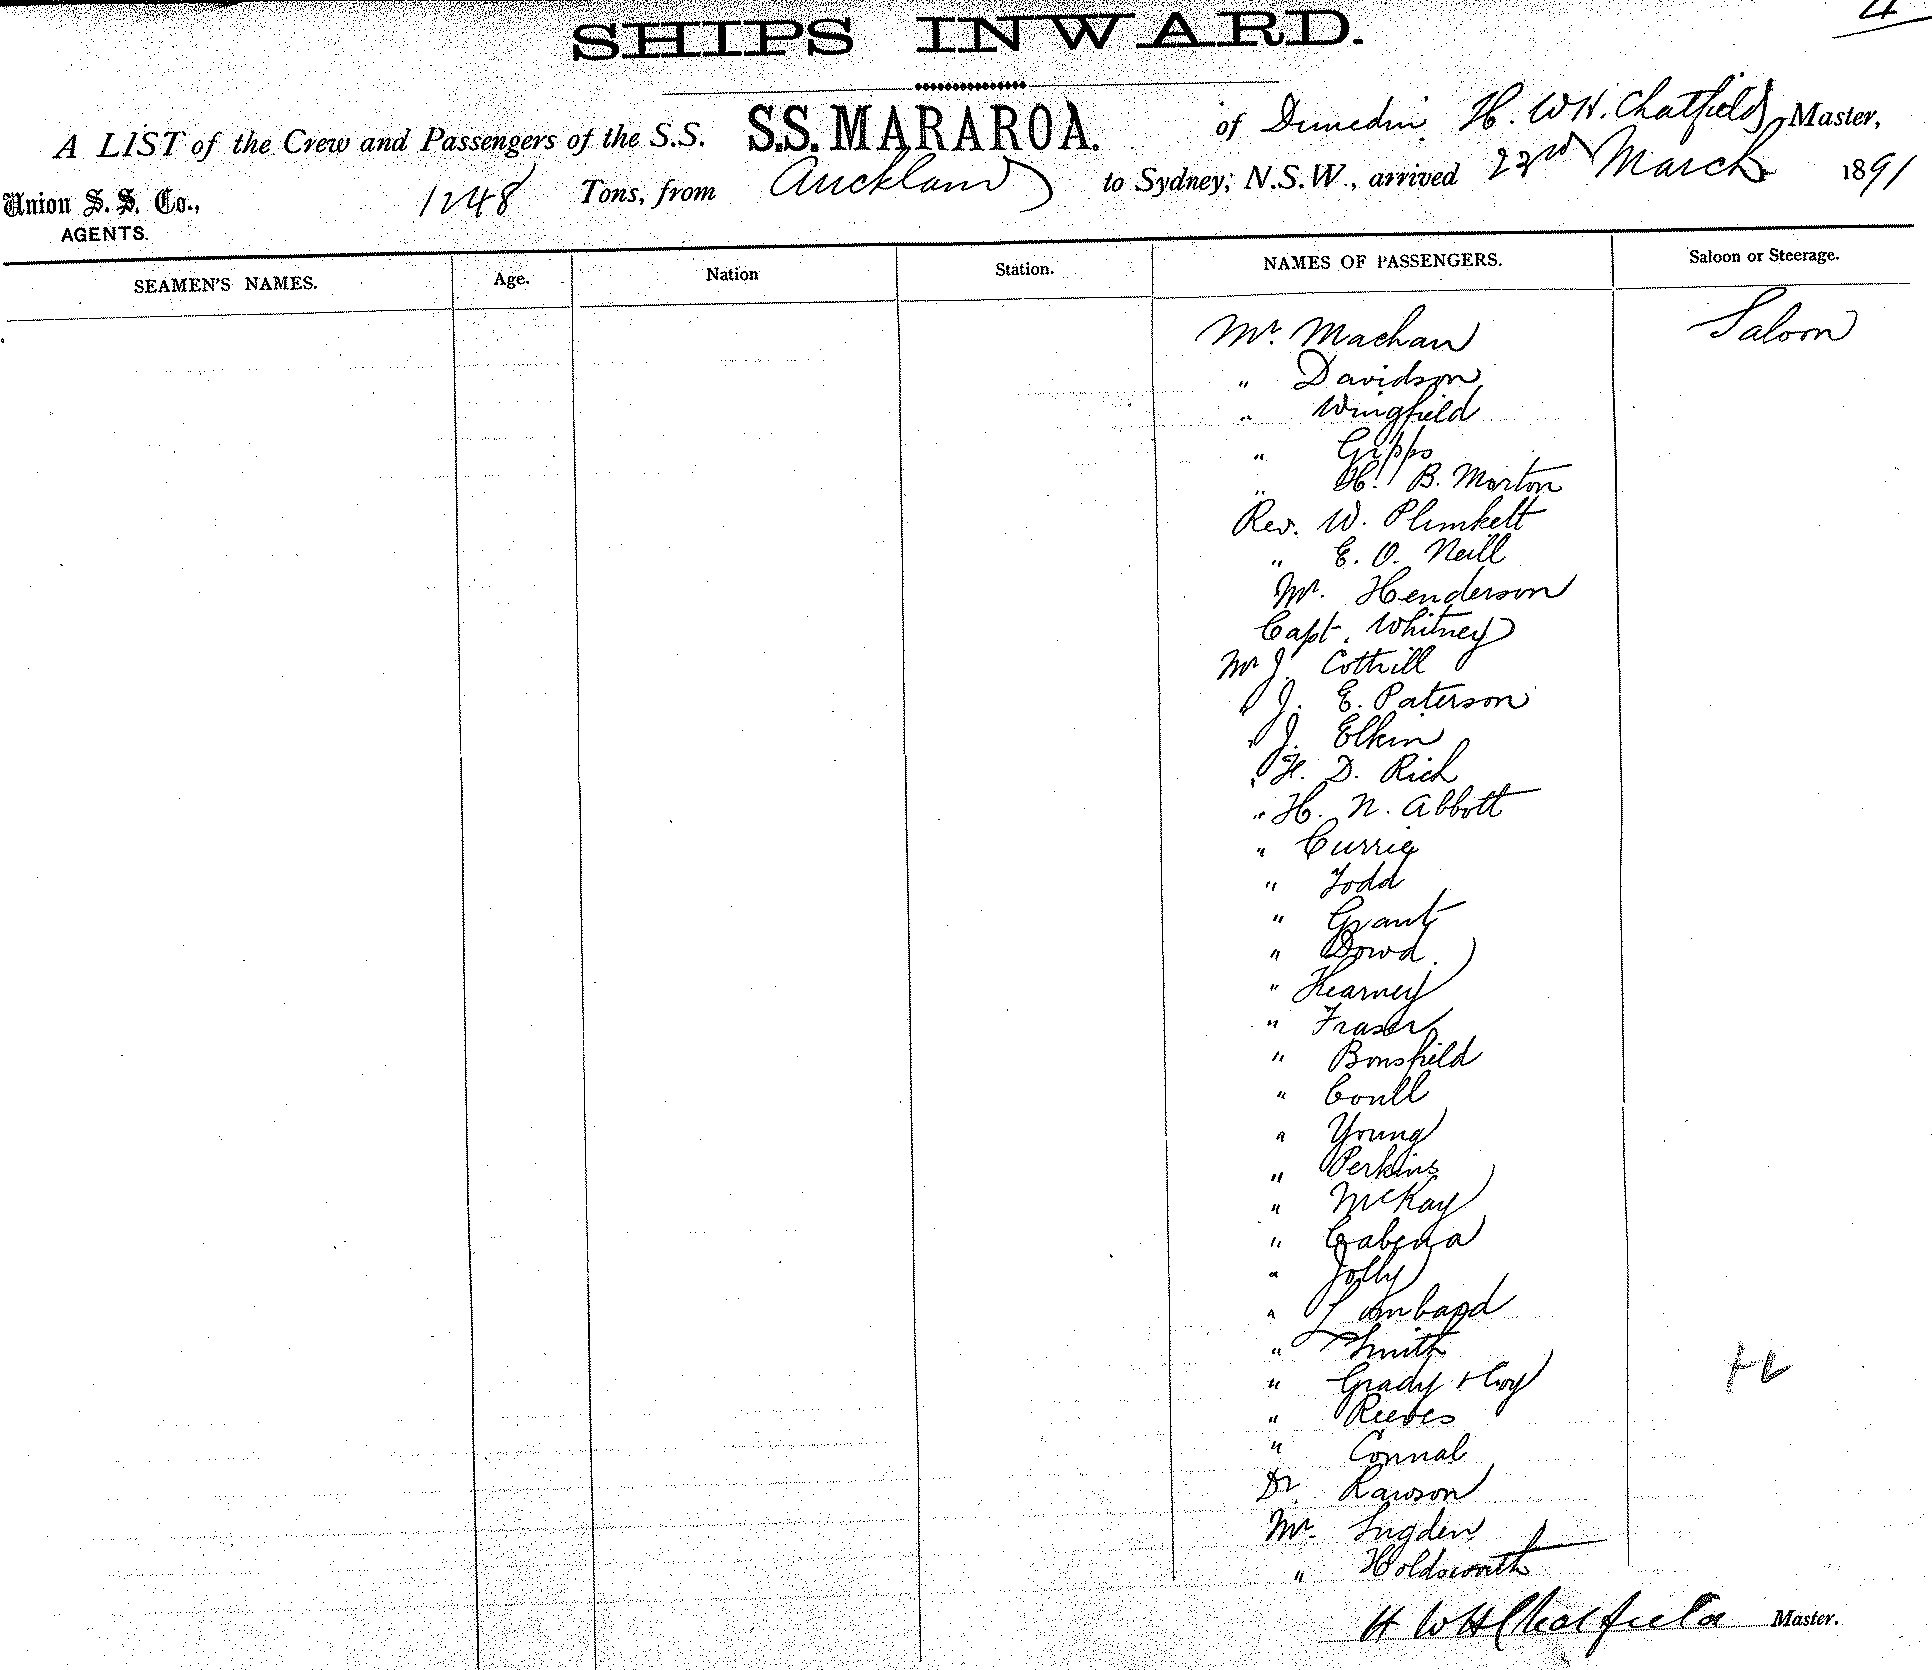 4
SHIPS INWARD.
A LIST of the Crew and Passengers of the S.S. S.S. MARAROA. of Dunedin H. WH. Chatfield Master,
Union S. S. Co., AGENTS. 1248 Tons, from Auckland to Sydney, N.S.W., arrived 22nd March 1891
SEAMEN'S NAMES. Age. Nation Station. NAMES OF PASSENGERS. Saloon or Steerage.
Mr. Machan Saloon
" Davidson
" Wingfield
" Gipps
" H. B. Morton
Rev. W. Plunkett
" E. O. Neill
Mr. Henderson
Capt. Whitney
Mr J. Cottrill
" J. E. Paterson
" J. Elkin
" H. D. Rich
" H. N. Abbott
" Currie
" Todd
" Grant
" Dowd
" Kearney
" Fraser
" Bousfield
" Coull
" Young
" Perkins
" McKay
" Cabena
" Jolly
" Lombard
" Smith
" Grady & Coy
" Reeves
" Connal
Dr. Rawson
Mr. Sugden
" Holdsworth
H WH Chatfield Master.